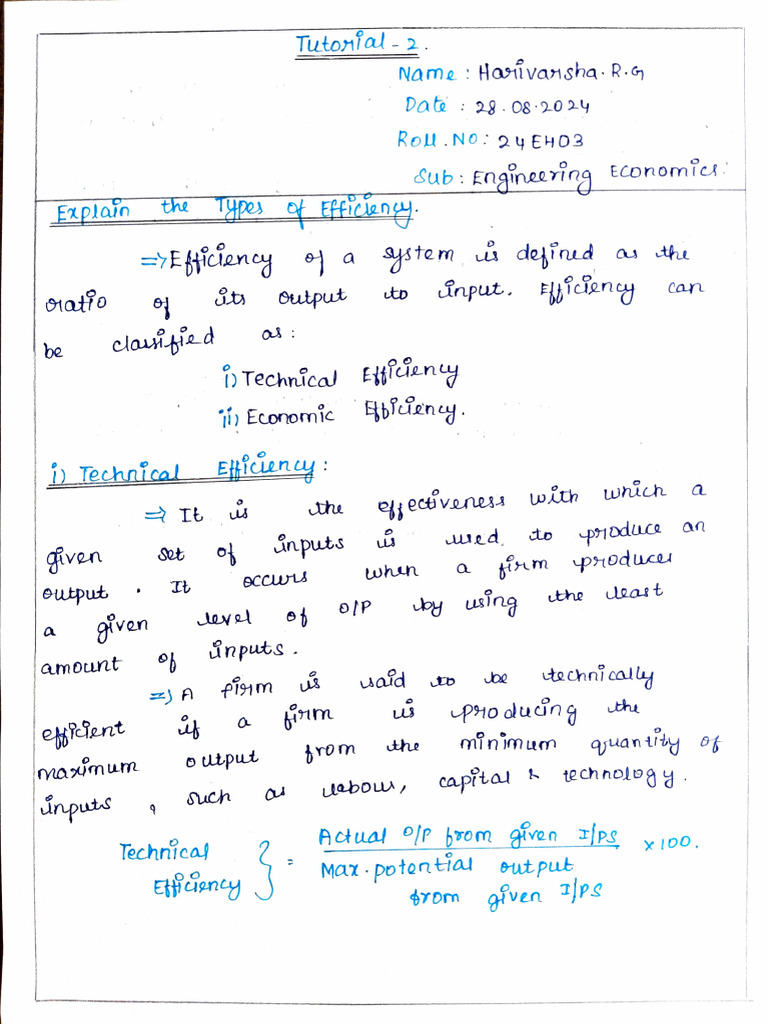 Tutorial - 2.
Name : Harivarsha. R.G
Date : 28.08.2024
Roll.No: 24EH03
Sub : Engineering Economics.
Explain the Types of Efficiency.
⇒ Efficiency of a system is defined as the
ratio of its output to input. Efficiency can
be classified as:
i) Technical Efficiency
ii) Economic Efficiency.
i) Technical Efficiency:
⇒ It is the effectiveness with which a
given set of inputs is used to produce an
output. It occurs when a firm produces
a given level of O/P by using the least
amount of inputs.
⇒ A firm is said to be technically
efficient if a firm is producing the
maximum output from the minimum quantity of
inputs, such as labour, capital & technology.
Technical Efficiency } = Actual O/P from given I/PS / Max. potential output from given I/PS × 100.